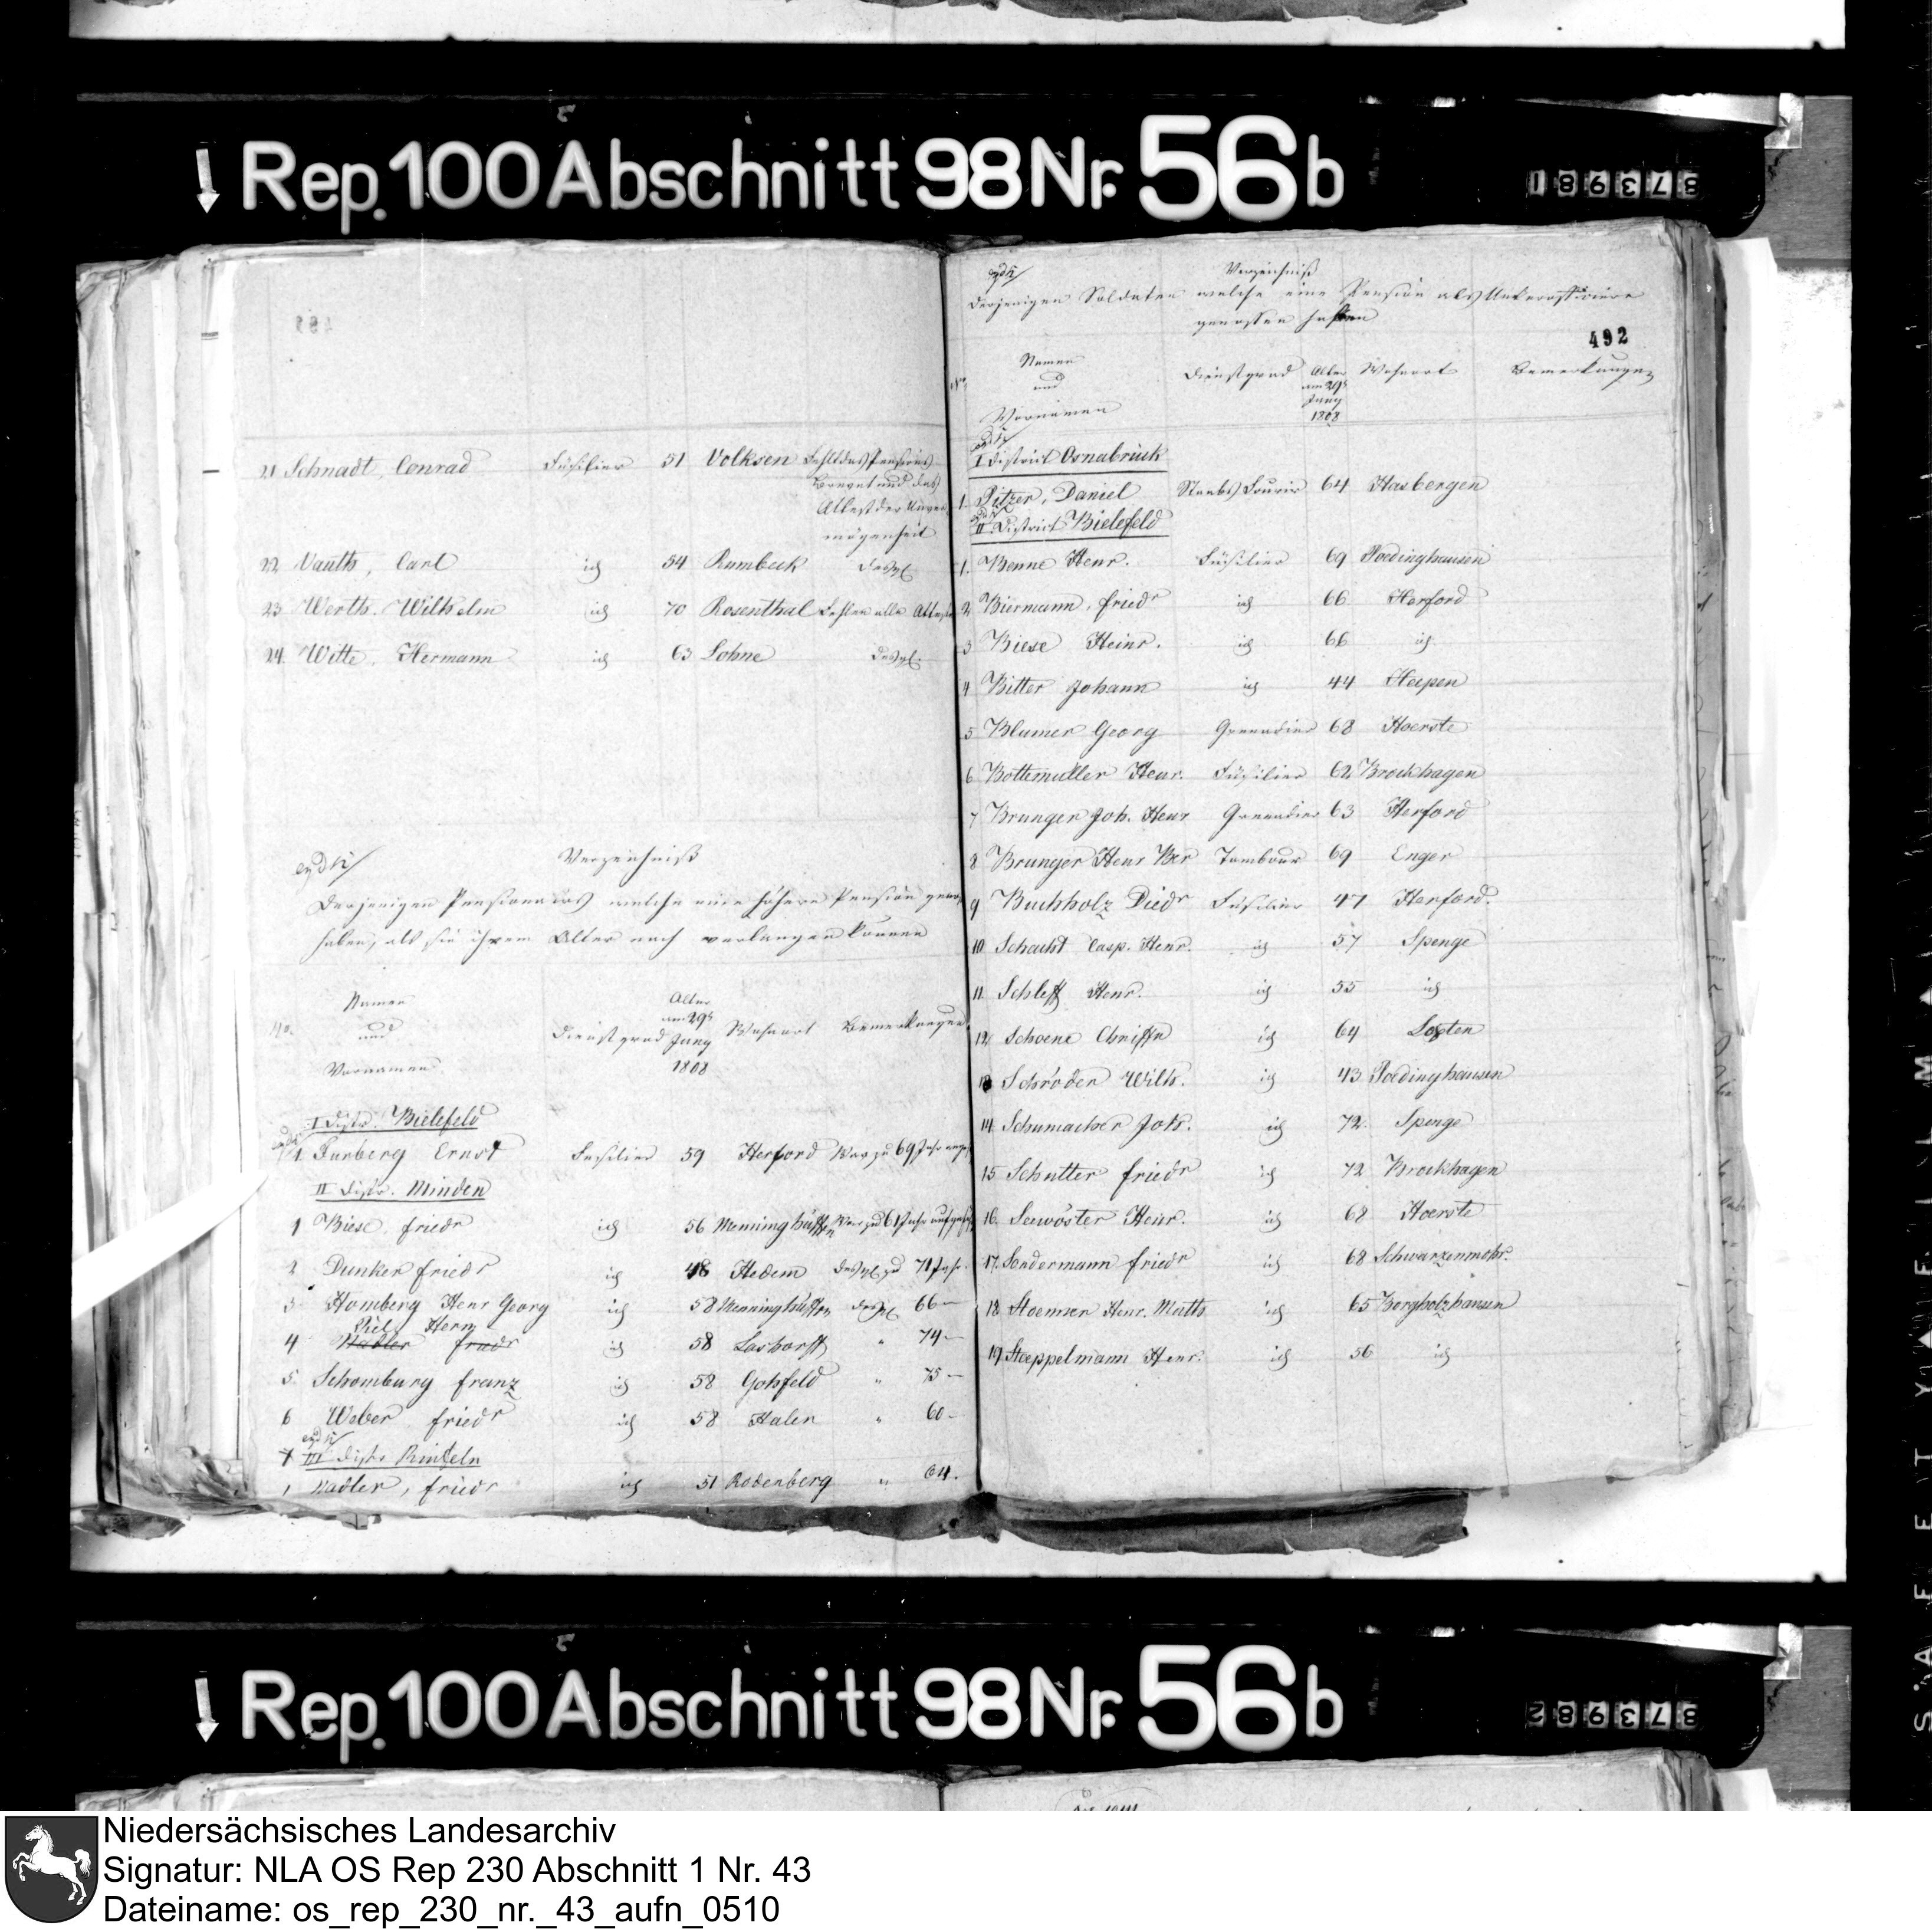 Rep. 100 Abschnitt 98 Nr. 56 b
873981
21 Schnadt, Conrad Füsilier 51 Volksen Fehlt das Pensions
Brevet und das
Attest der Unver-
mögenheit
22 Vauth, Carl id 54 Rumbeck
23 Werth. Wilhelm id 70 Rosenthal Fehlen alle Atteste
24. Witte. Hermann id 63 Lohne
Verzeichniß
Derjenigen Pensionairs welche eine höhere Pension
haben, als sie ihrem Alter nach verlangen können
No. Namen und Vornamen Dienstgrad Alter am 29t Juny 1808 Wohnort Bemerkungen
I Distr. Bielefeld
1. Furberg Ernst Füsilier 59 Herford War zu 69 Jahr
II Distr. Minden
1 Biese friedr id 56 Menninghüffen War zu 61 Jahr
2 Dunker friedr id 48 Hedem 71 Jahr
3 Homberg Henr Georg id 58 Menninghüffen 66 —
Piel Herm
4 Nadler friedr id 58 Lashorst " 74 —
5. Schomburg franz id 58 Gohfeld " 75 —
6 Weber friedr id 58 Halen " 60 —
III Distr Rinteln
1 Nadler, friedr id 51 Rodenberg " 64.
Verzeichniß
derjenigen Soldaten welche eine Pension als Unterofficiere
genossen haben
492
No. Namen und Vornamen Dienstgrad Alter am 29t Juny 1808 Wohnort Bemerkungen
I District Osnabrück
1. Pitzer, Daniel Staabs Fourir 64 Hasbergen
II District Bielefeld
1. Benne Henr. Füsilier 69 Roedinghausen
2 Biermann, friedr id 66 Herford
3 Biese Heinr. id 66 id
4 Bitter Johann id 44 Heepen
5 Blumer Georg Grenadier 68 Hoerste
6 Bottemuller Henr. Füsilier 62 Brockhagen
7 Brunger Joh. Henr Grenadier 63 Herford
8 Brunger Henr Ber Tambour 69 Enger
9 Buchholz Diedr Füsilier 47 Herford.
10 Schacht Casp. Henr. id 57 Spenge
11 Schleff Henr. id 55 id
12 Schoene Christn id 64 Loxten
13 Schröder Wilh. id 43 Roedinghausen
14 Schumacher Joh. id 72. Spenge
15 Schutter friedr id 72 Brockhagen
16. Seewöster Henr. id 68 Hoerste
17. Sondermann friedr id 68 Schwarzenmohr.
18 Stoemer Henr. Math id 65 Borgholzhausen
19 Stoeppelmann Henr. id 56 id
Rep. 100 Abschnitt 98 Nr. 56 b
873982
Niedersächsisches Landesarchiv
Signatur: NLA OS Rep 230 Abschnitt 1 Nr. 43
Dateiname: os_rep_230_nr._43_aufn_0510